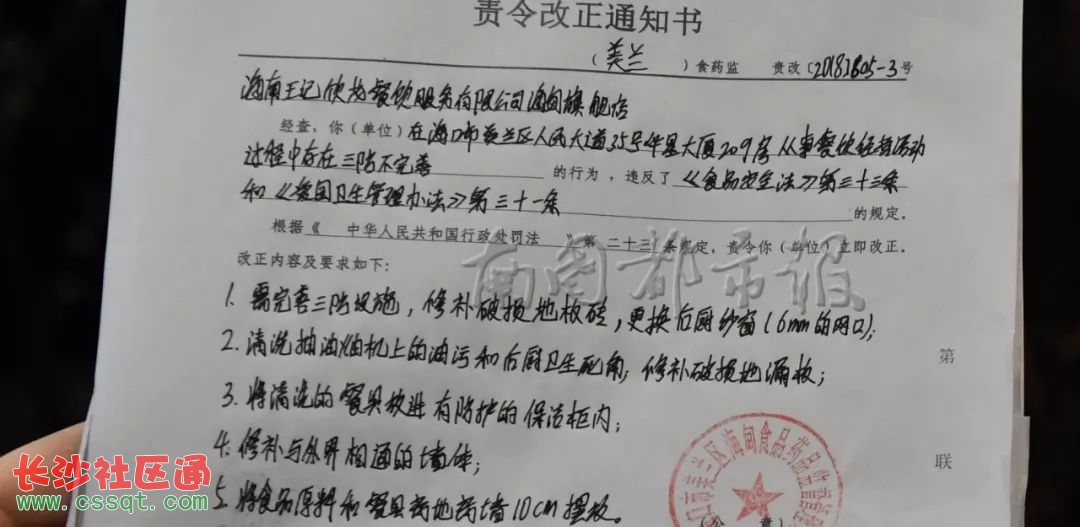 责令改正通知书
(美兰)食药监 责改[2018]B05-3号
海南王记饮

餐饮服务有限公司海甸旗舰店
经查，你（单位）在海口市美兰区人民大道35号华星大厦209房从事餐饮经营活动
过程中存在三防不完善 的行为，违反了《食品安全法》第三十三条
和《爱国卫生管理办法》第三十一条 的规定。
根据《 中华人民共和国行政处罚法 》第 二十三 条规定，责令你（单位）立即改正。
改正内容及要求如下：
南国都市报
1. 需完善三防设施，修补破损地板砖，更换后厨纱窗(6mm的网口)；
2. 清洗抽油烟机上的油污和后厨卫生死角，修补破损地漏板；
3. 将清洗的餐具放进有防护的保洁柜内；
4. 修补与外界相通的墙体；
5. 将食品原料和餐具离地离墙10cm摆放。
第
联
口市美兰区海甸食品药品监督管
章）
长沙社区通
www.cssqt.com